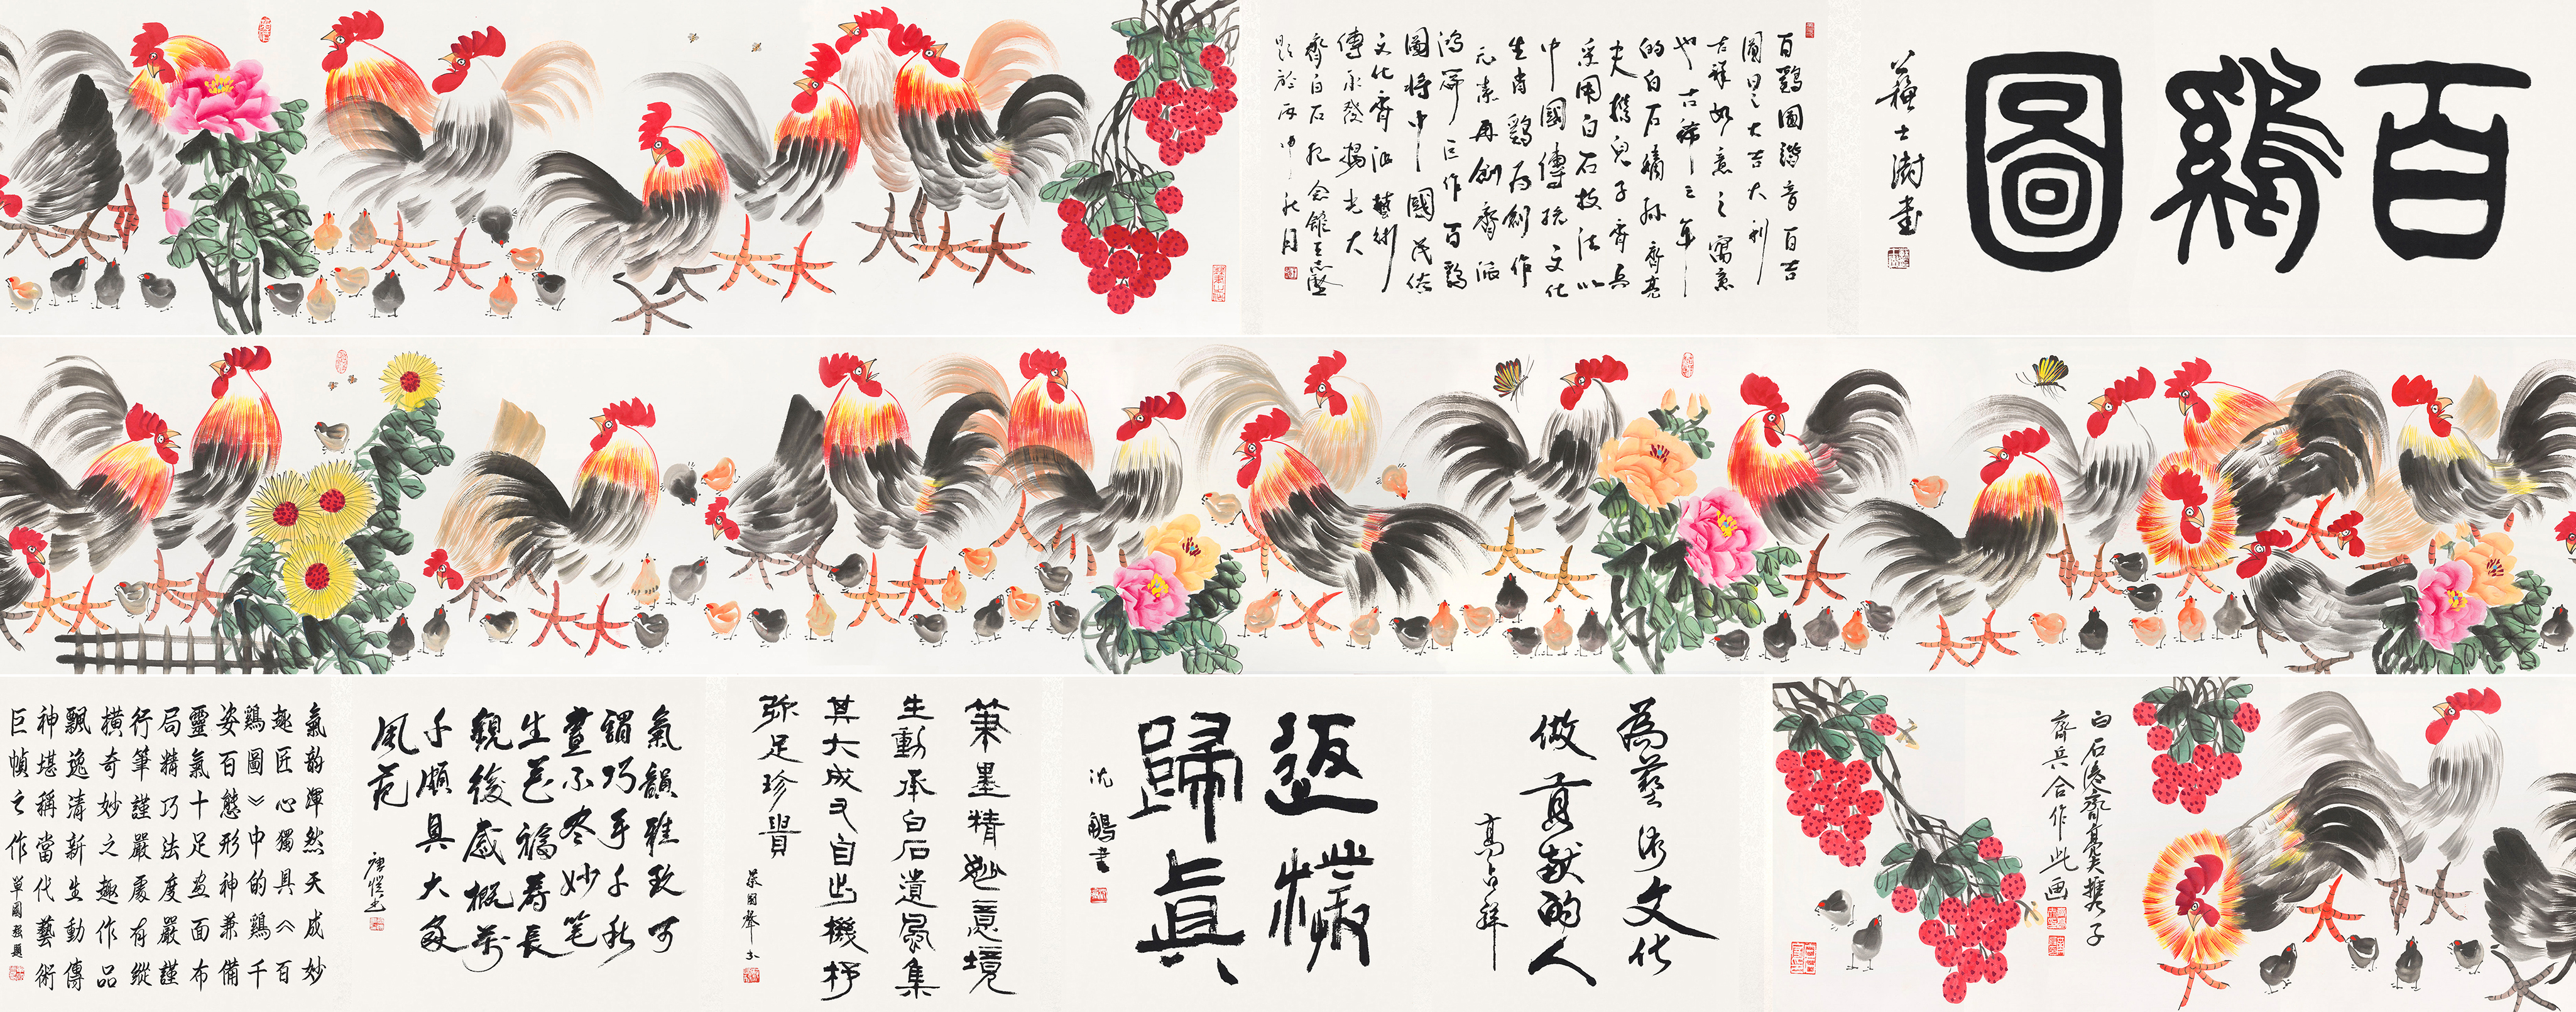 百鷄圖
蘇士澍書
百鷄圖諧音百吉
圖曰之大吉大利
吉祥如意之寓意
也古稀之年
的白石嫡孫齊亮
夫携兒子齊兵
采用白石技法以
中國傳統文化
生肖鷄為創作
元素再創齊派
鴻篇巨作百鷄
圖將中國民俗
文化齊派藝術
傳承發揚光大
齊白石紀念館王志堅
題於丙申秋月
白石后裔齊亮夫携子
齊兵合作此画
為藝術文化
做貢献的人
高占祥
返樸
歸真
沈鵬書
筆墨精妙意境
生動承白石遺風集
其大成又自出機杼
弥足珍貴
氣韻雅致可
謂巧手千秋
畫不尽妙笔
生花福寿長
觀後感概万
千頗具大家
風范
唐恺书
氣韵渾然天成妙
趣匠心獨具《百
鷄圖》中的鷄千
姿百態形神兼備
靈氣十足画面布
局精巧法度嚴謹
行筆謹嚴處有縱
橫奇妙之趣作品
飄逸清新生動傳
神堪稱當代藝術
巨幀之作單國强題